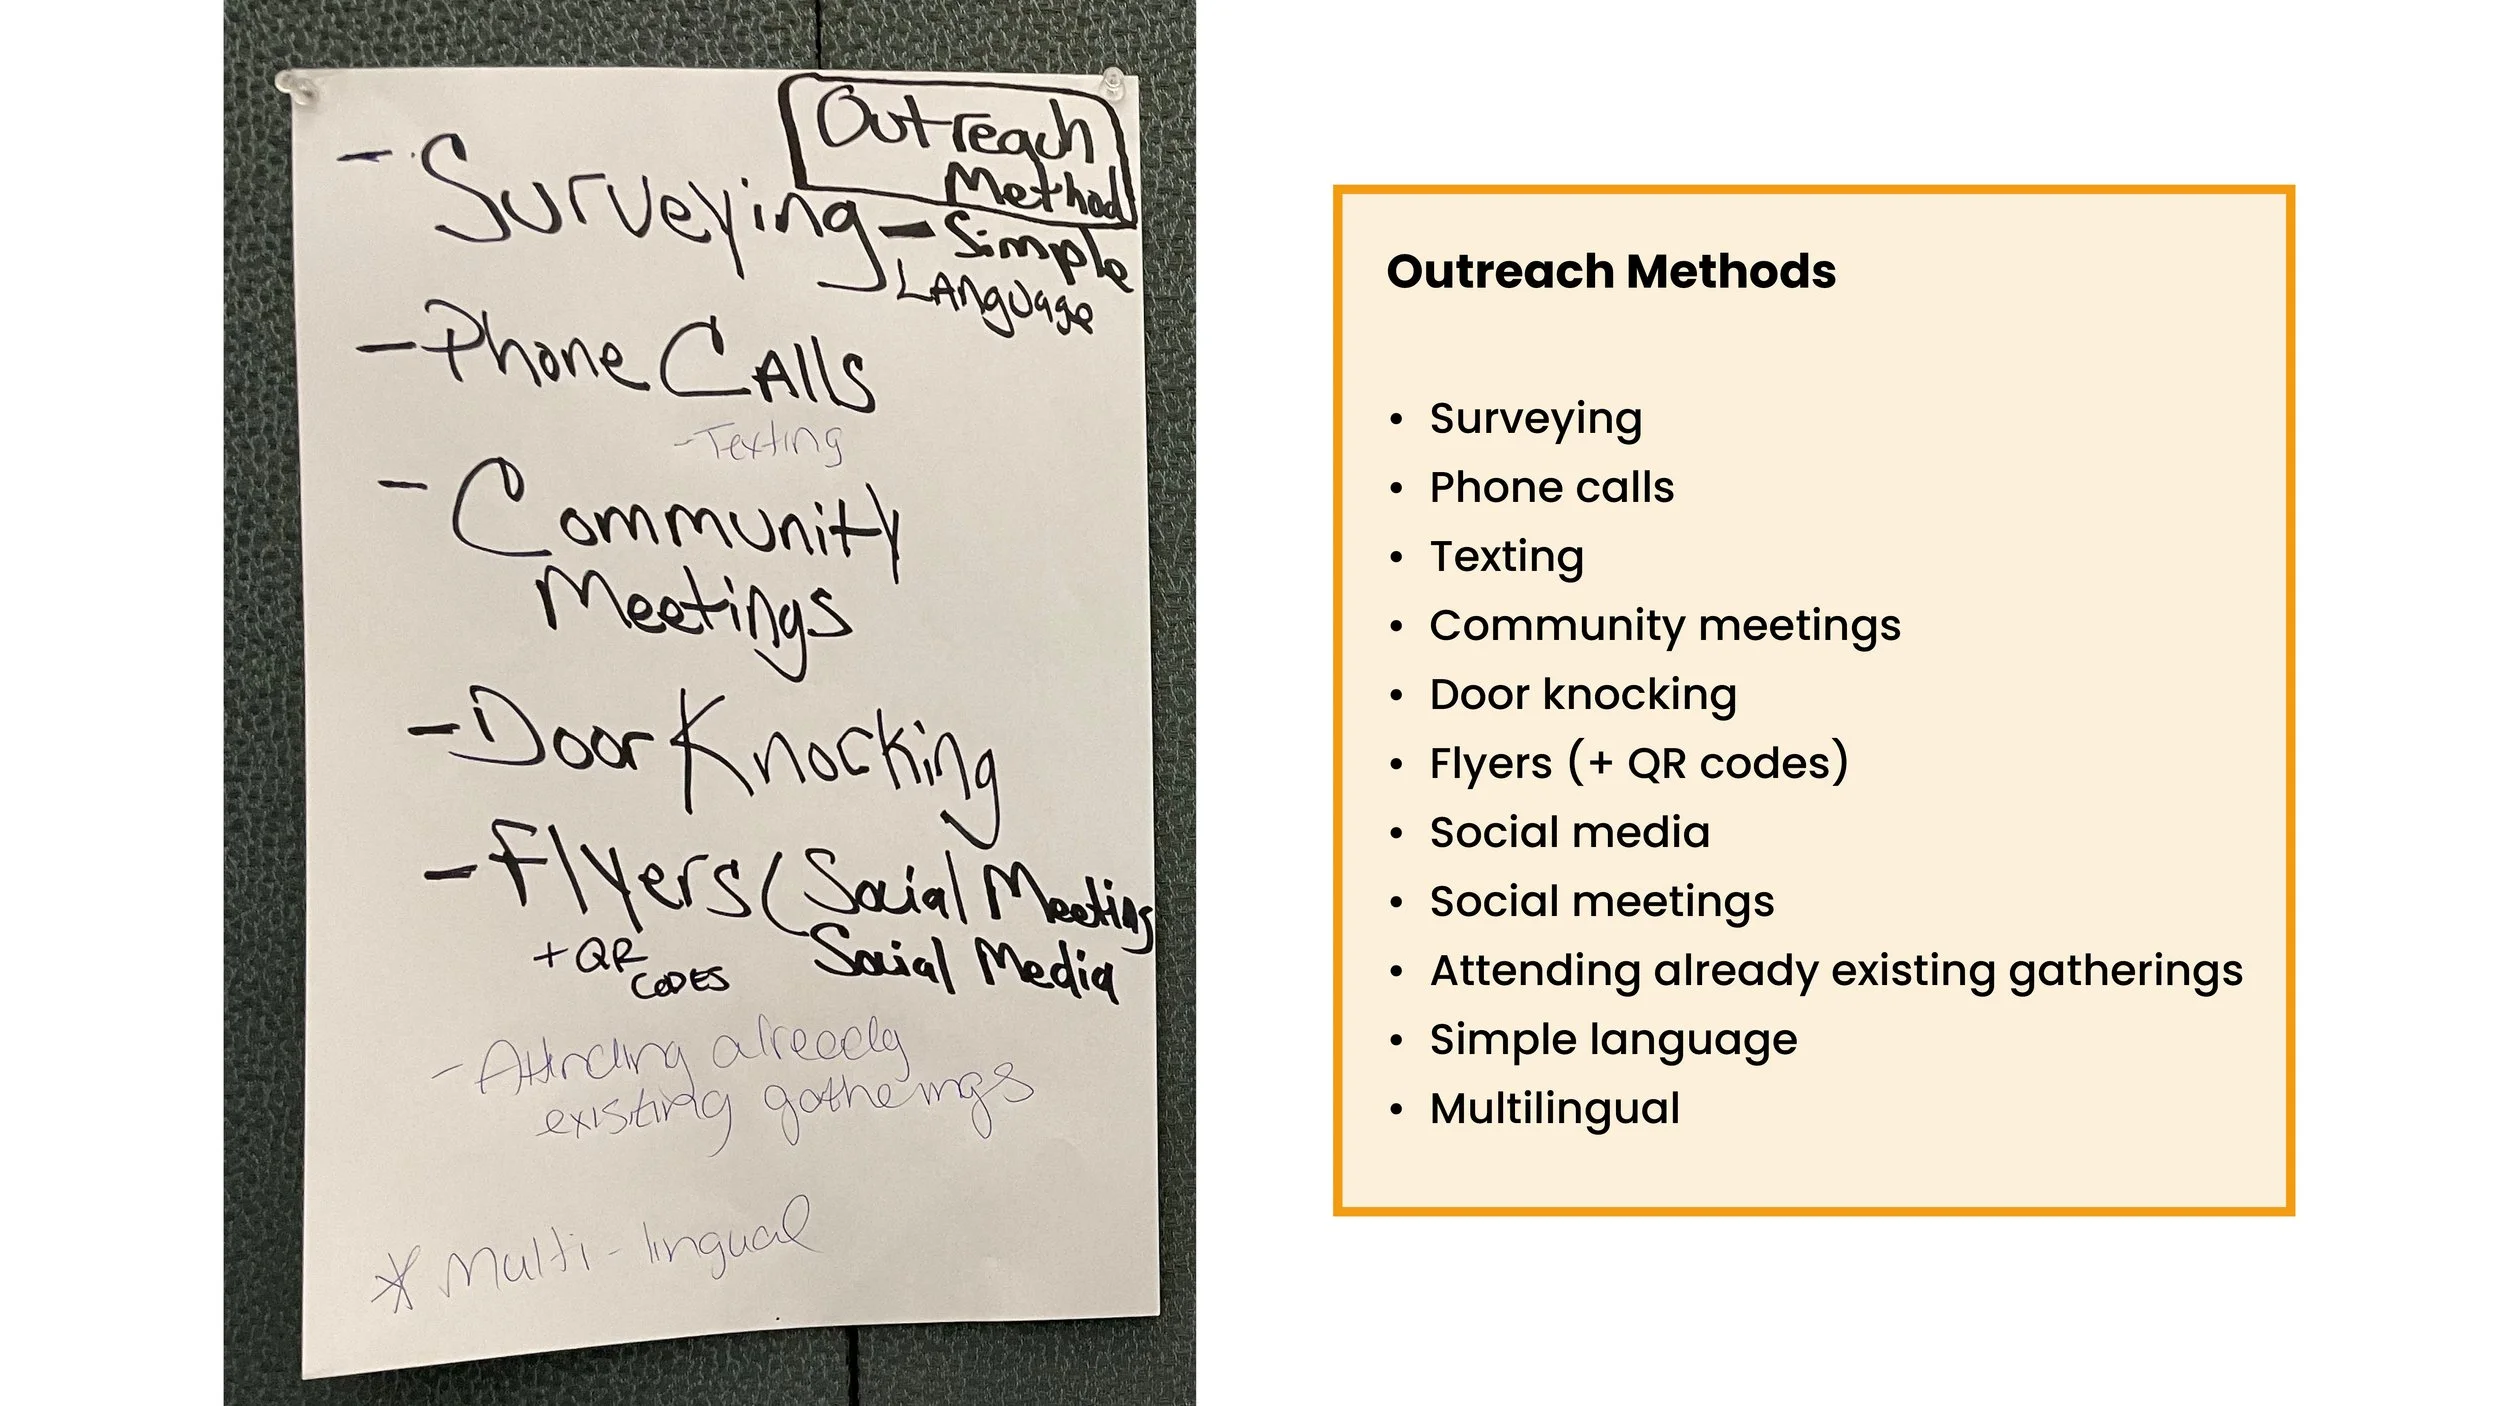 Outreach
Method
- Surveying - Simple
Language
- Phone Calls
- Texting
- Community
Meetings
- Door Knocking
- Flyers ( Social Meeting
+ QR
CODES
Social Media
- Attending already
existing gatherings
* Multi-lingual
Outreach Methods
• Surveying
• Phone calls
• Texting
• Community meetings
• Door knocking
• Flyers (+ QR codes)
• Social media
• Social meetings
• Attending already existing gatherings
• Simple language
• Multilingual